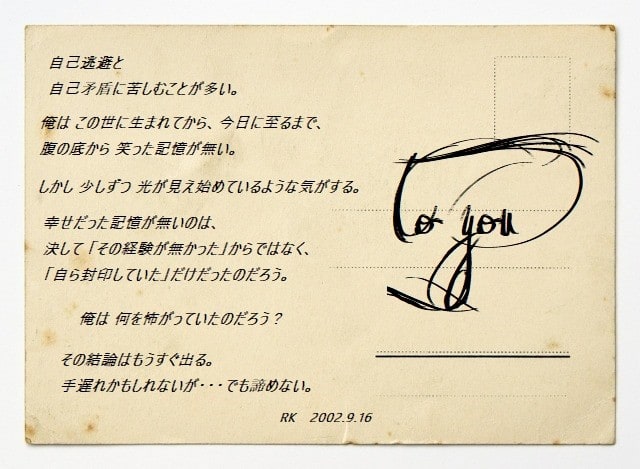 自己逃避と
自己矛盾に苦しむことが多い。
俺は この世に生まれてから、今日に至るまで、
腹の底から 笑った記憶が無い。
しかし 少しずつ 光が見え始めているような気がする。
幸せだった記憶が無いのは、
決して「その経験が無かった」からではなく、
「自ら封印していた」だけだったのだろう。
俺は 何を怖がっていたのだろう？
その結論はもうすぐ出る。
手遅れかもしれないが・・・でも諦めない。
RK 2002.9.16
To you